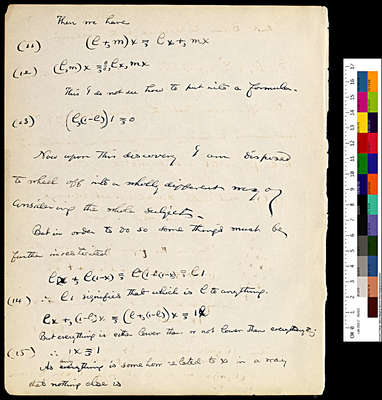 Then we have
(11) (l +, m)x =, lx +, mx
(12) (l, m)x =, lx, mx
This I do not see how to put into a formula.
(13) (l,(1-l))1 =, 0
Now upon this discovery I am disposed
to wheel off into a wholly different way of
considering the whole subject.
But in order to do so some things must be
further investigated
lx +, l(1-x) =, l(1-x) =, l1
(14) ∴ l1 signifies that which is l to anything.
lx +, (1-l)x =, (l +, (1-l))x =, 1x
But everything is either lover than or not lover than everything
(15) ∴ 1x =, 1
As everything is some how related to x in a way
that nothing else is